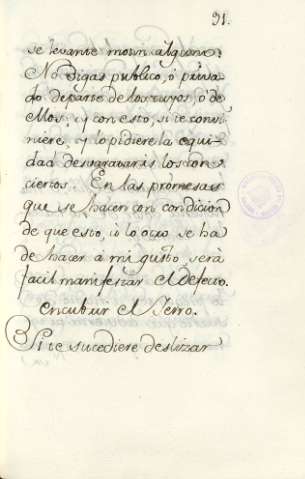 91.
se levante motin alguno.
No digas publico, ó priva
do departe de los tuyos, ó de
ellos, y con esto, si te convi
niere, y lo pidiere la equi
dad desvaratarás los con
ciertos. En las promesas
que se hacen con condicion
de que esto, ó lo otro se ha
de hacer á mi gusto, será
facil manifestar el defecto.
encubrir el Yerro.
Si te sucediere deslizar